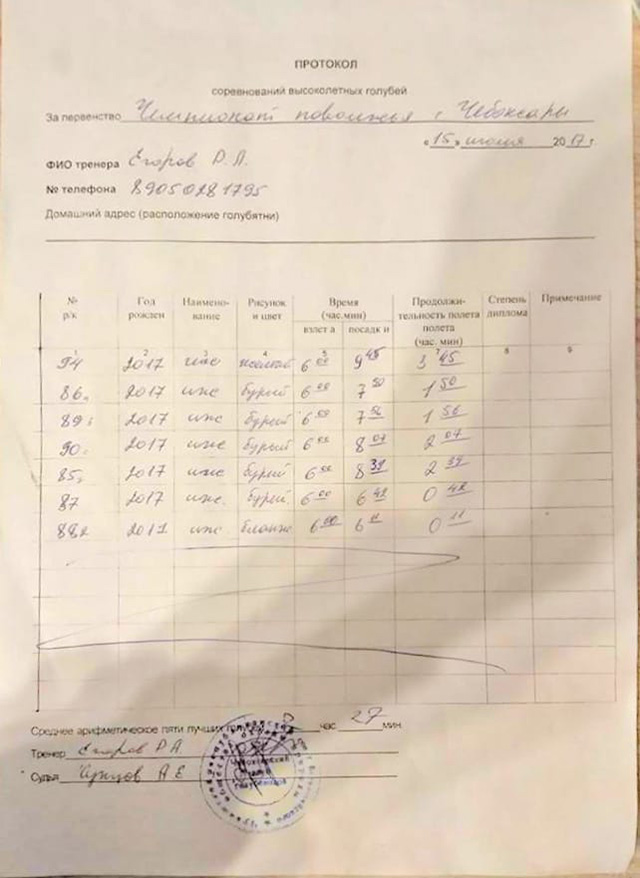 ПРОТОКОЛ
соревнований высоколетных голубей
За первенство Чемпионат поволжья г Чебоксары
«15» 2017г
ФИО тренера Егоров Р.А.
№ телефона 89050281795
Домашний адрес (расположение голубятни)
№ р/к Год рожден Наимено-вание Рисунок и цвет Время (час.мин) взлета посадки Продолжи-тельность полета полета (час. мин) Степень диплома Примечание
1 2 3 4 5 7 8 9
94 2017 ижс 6 00 9 45 3 45
86 2017 ижс бурый 6 00 7 50 1 50
89 2017 ижс бурый 6 00 7 56 1 56
90 2017 ижс бурый 6 00 8 07 2 07
85 2017 ижс бурый 6 00 8 39 2 39
87 2017 ижс бурый 6 00 6 42 0 42
882 2017 ижс 6 00 6 11 0 11
Среднее арифметическое пяти лучших 2 час 27 мин
Тренер Егоров Р А
Судья А Е